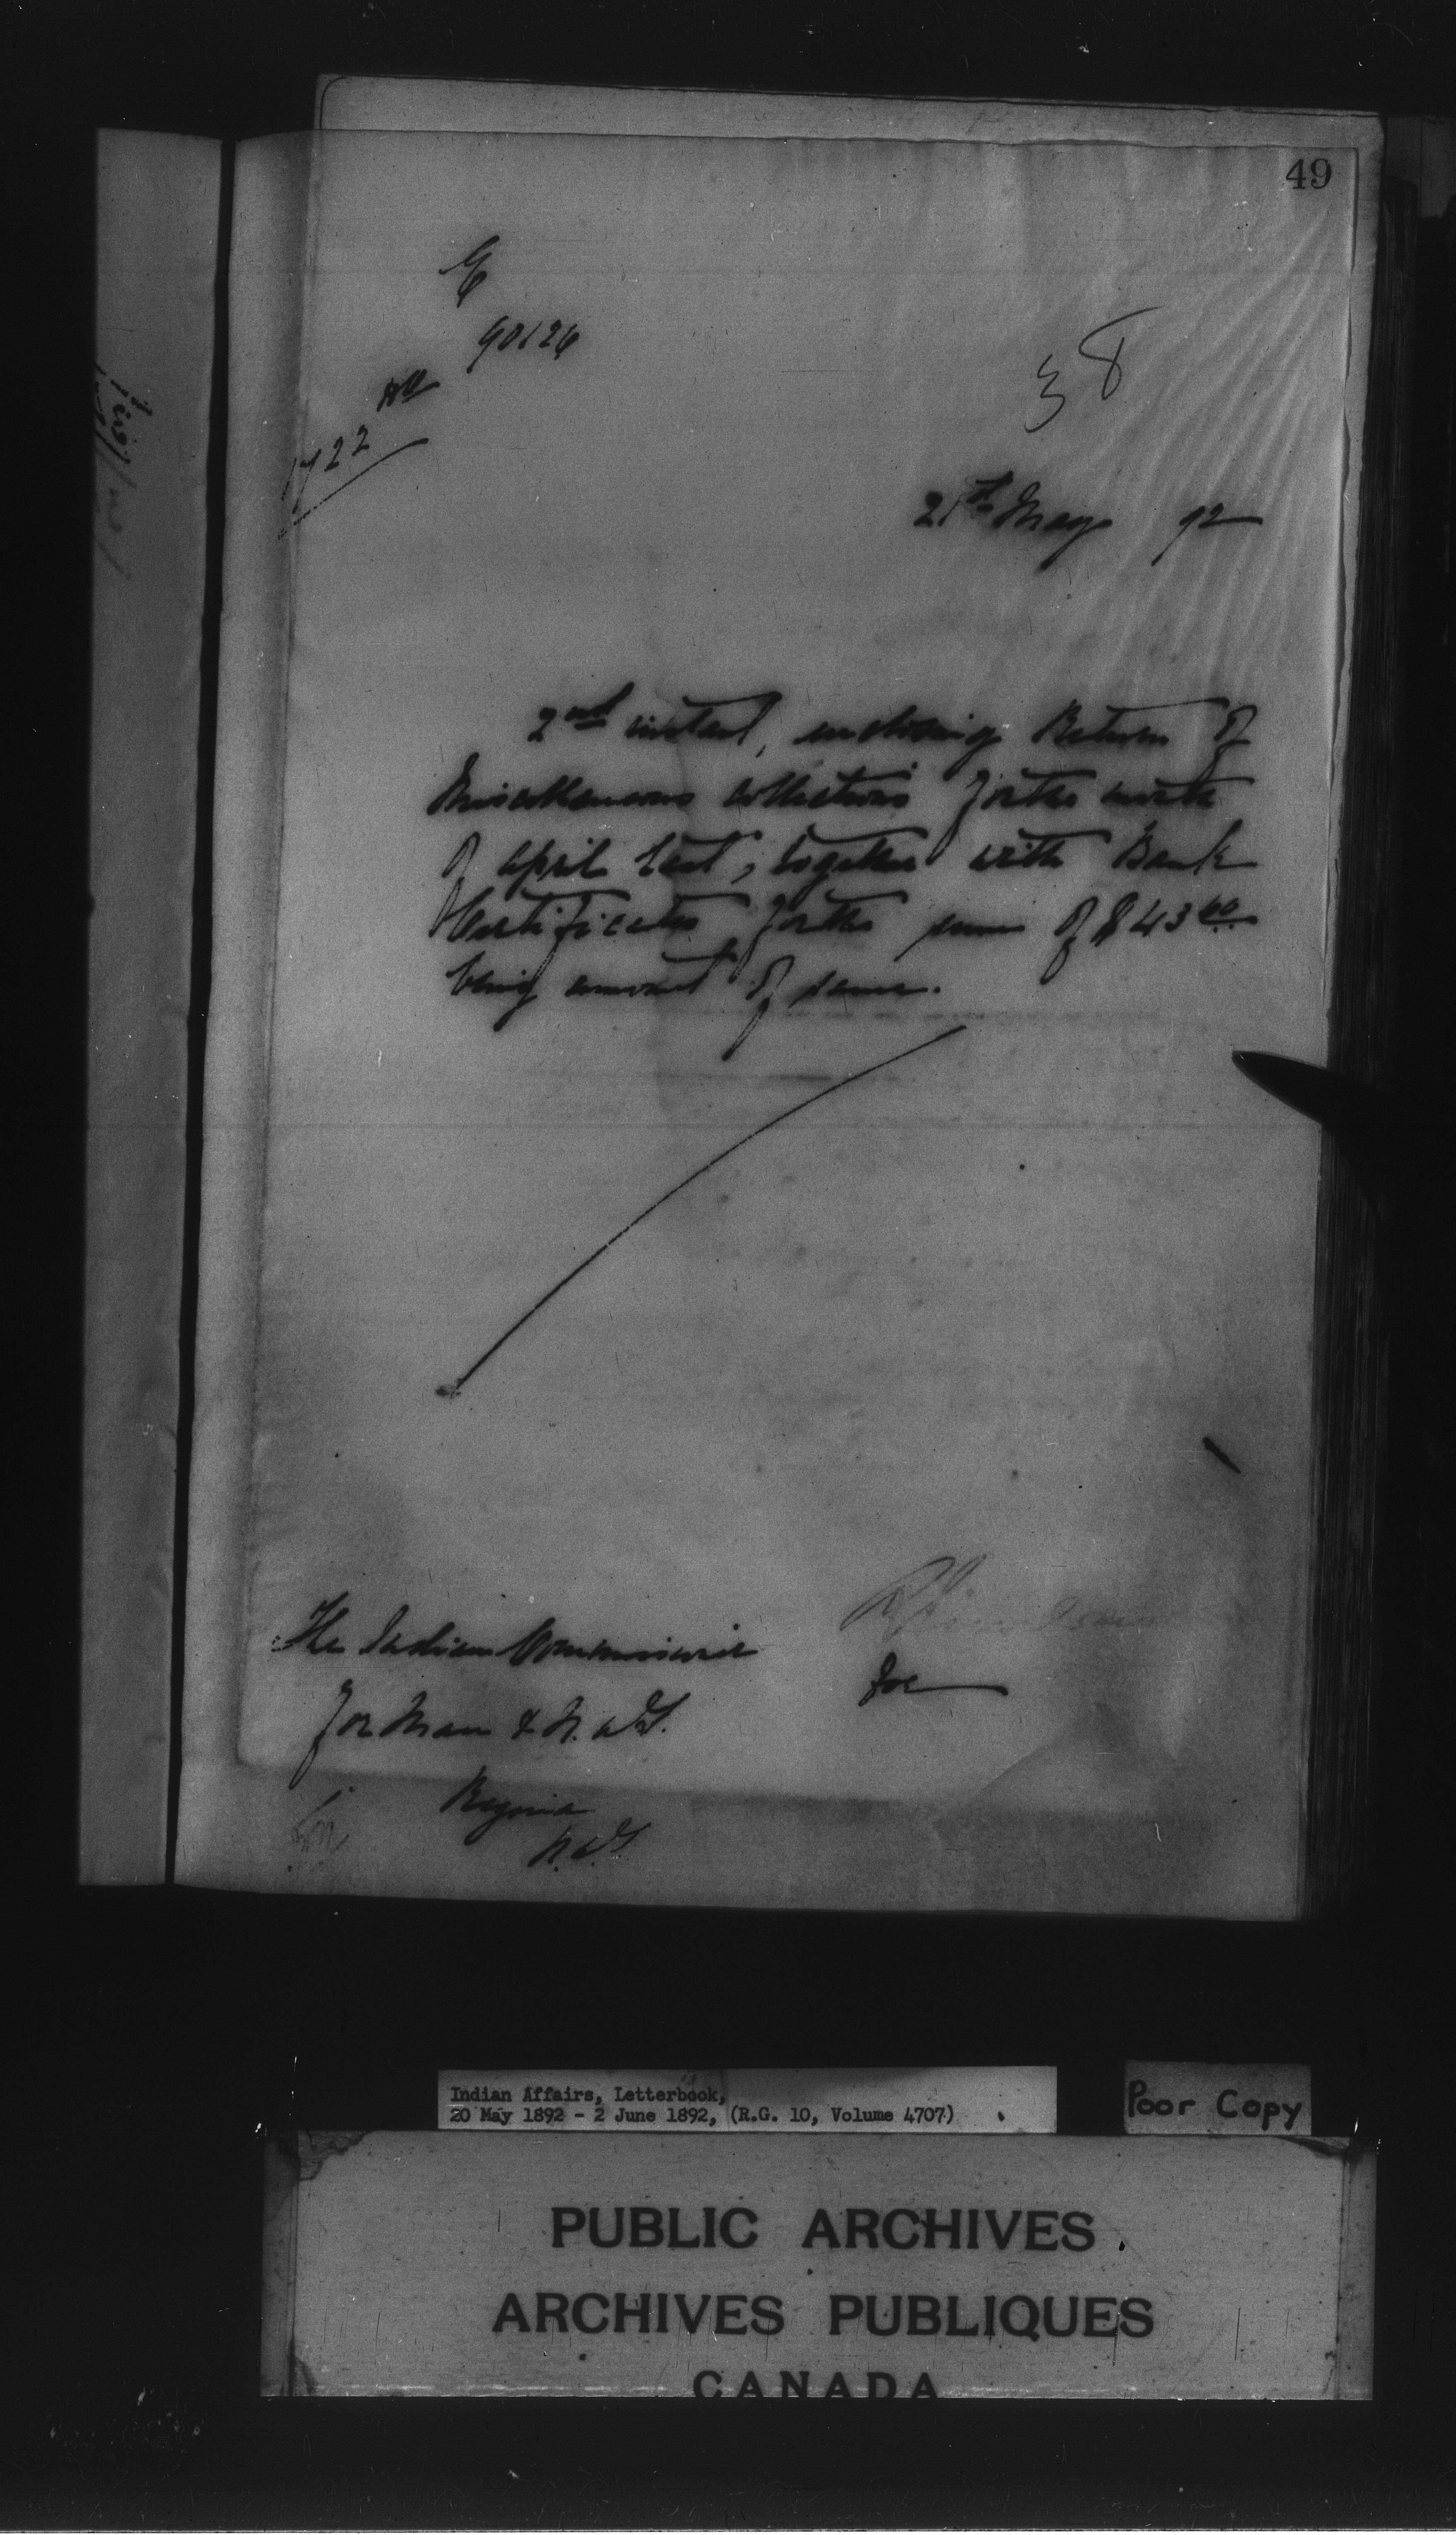 49
90126
38
1722
21st May 92
2nd instant, enclosing Return of
Miscellaneous collections for the month
of April last, together with Bank
Certificate for the sum of $43.00
being amount of same.
The Indian Commissioner
for Man & N.W.T.
Regina
N.W.T.
Indian Affairs, Letterbook,
20 May 1892 - 2 June 1892, (R.G. 10, Volume 4707)
Poor Copy
PUBLIC ARCHIVES
ARCHIVES PUBLIQUES
CANADA